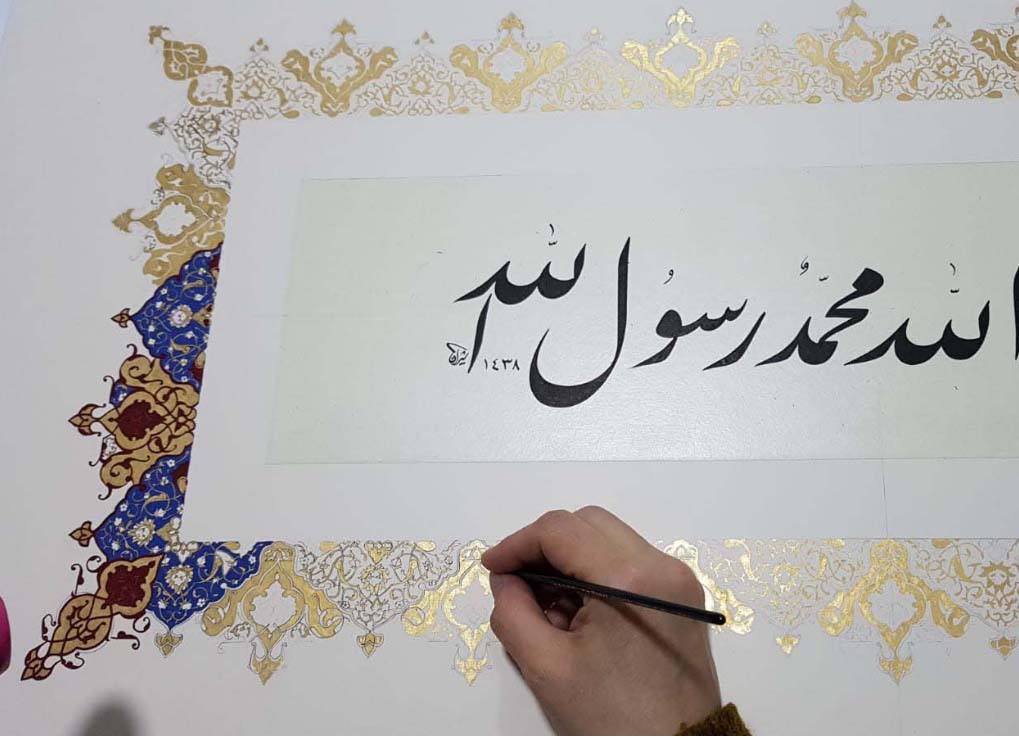 الله محمّدٌ رسولُ الله
١٤٣٨